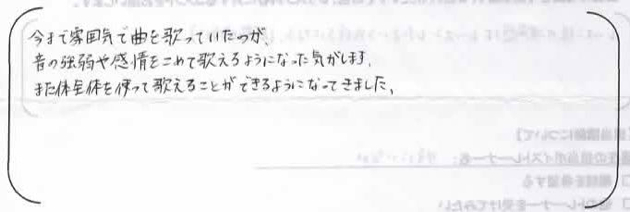 今まで雰囲気で曲を歌っていたのが、
音の強弱や感情をこめて歌えるようになった気がします。
また体全体を使って歌えることができるようになってきました。